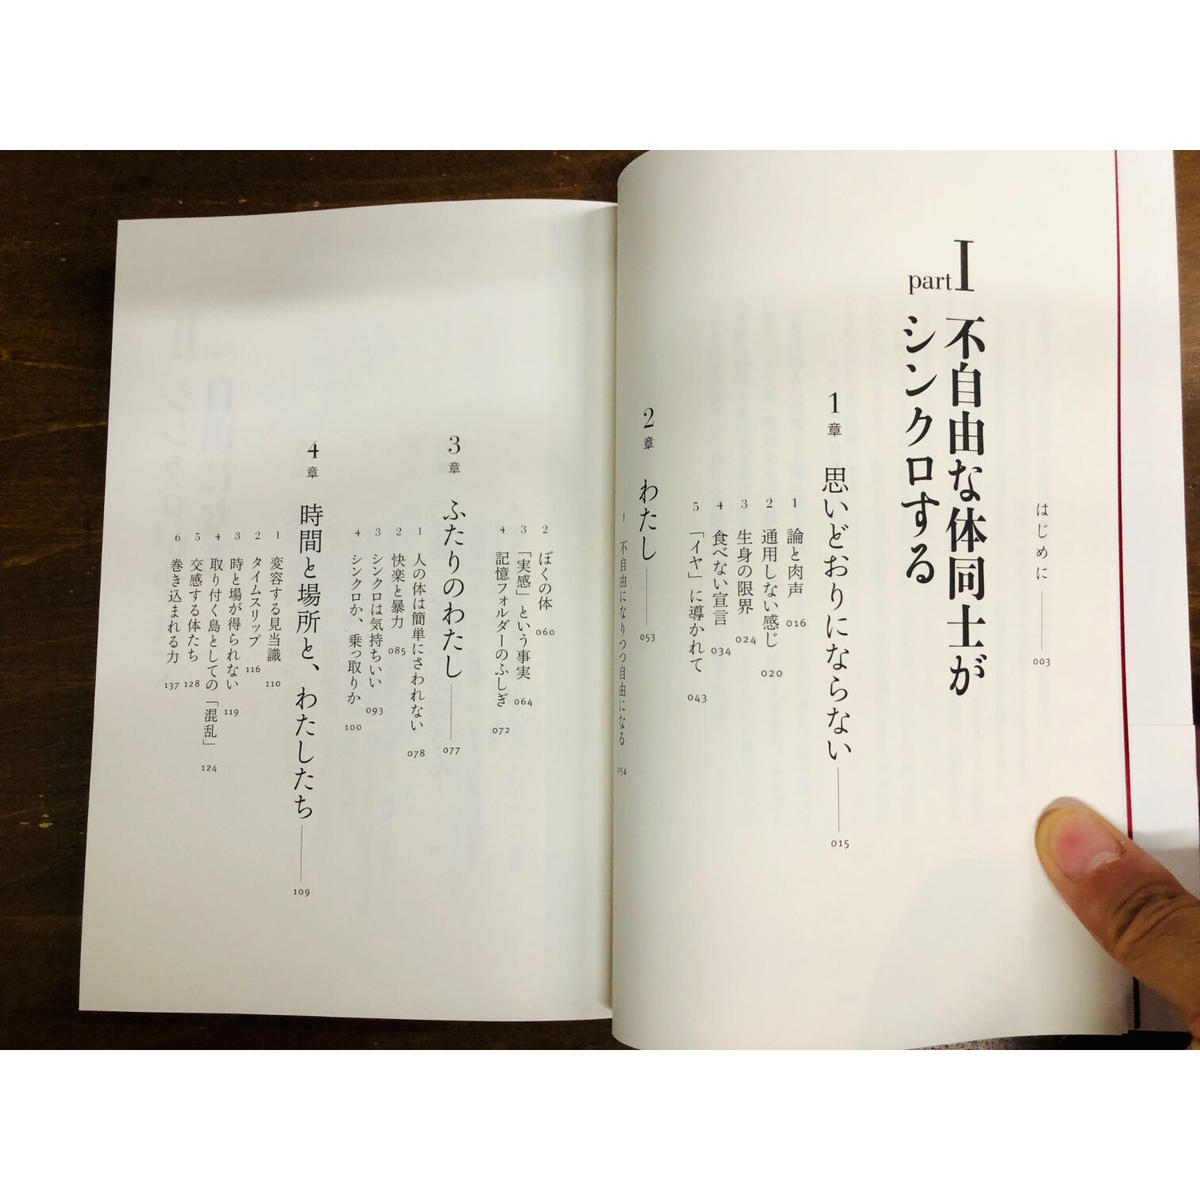 はじめに 003
part I
不自由な体同士が
シンクロする
1章 思いどおりにならない 015
1 論と肉声 016
2 通用しない感じ 020
3 生身の限界 024
4 食べない宣言 034
5 「イヤ」に導かれて 043
2章 わたし 053
1 不自由になりつつ自由になる 054
2 ぼくの体 060
3 「実感」という事実 064
4 記憶フォルダーのふしぎ 072
3章 ふたりのわたし 077
1 人の体は簡単にさわれない 078
2 快楽と暴力 085
3 シンクロは気持ちいい 093
4 シンクロか、乗っ取りか 100
4章 時間と場所と、わたしたち 109
1 変容する見当識 110
2 タイムスリップ 116
3 時と場が得られない 119
4 取り付く島としての「混乱」 124
5 交感する体たち 128
6 巻き込まれる力 137